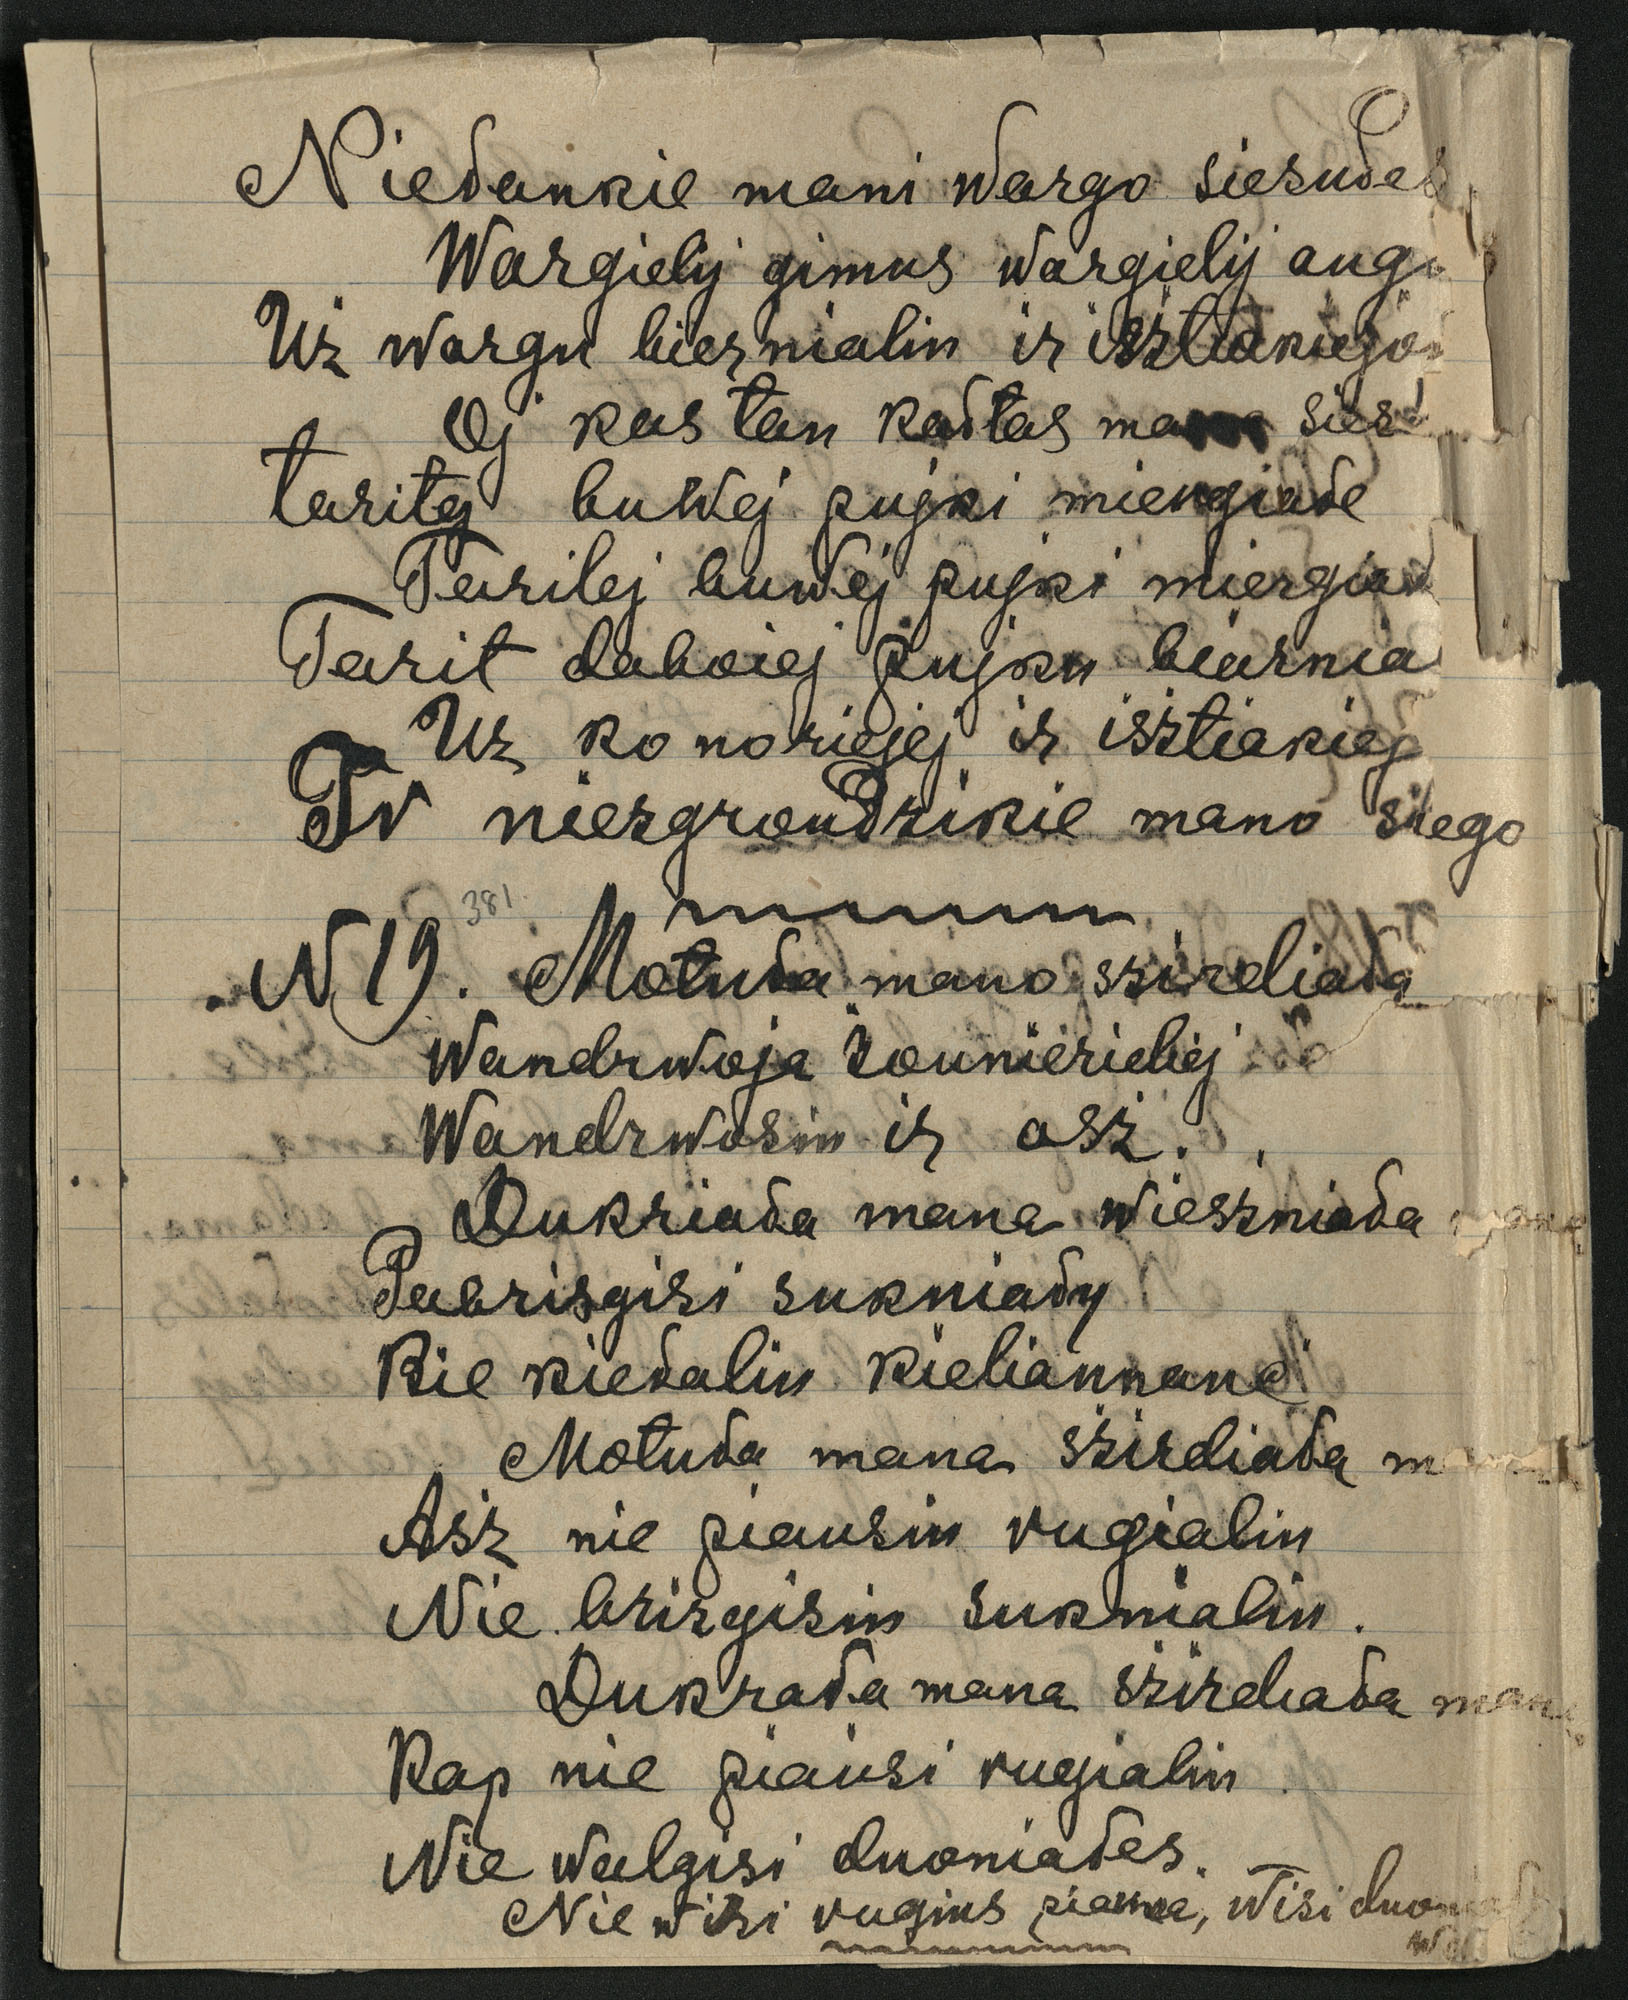 Niedaukie mani wargo siesudes
Wargielij gimus wargielij aug
Uż wargu biernialiu ir isztiakiejo
Oj kas tau kadtas siesi
taritej buwej pujki miergiade
Taritej buwej pujki miergiad
Tarit dabojej pujku biarnia
Uż ko noriejej ir isztiakiej
Tu niezgraudzikie mano siego
381
N 19. Motuda mano szirdiada
Wandrwoja żounierielej
Wandrwosiu ir asz.
Dukriada mana wieszniada mana
Pabrizgisi sukniady
Bie kiedaliu kieliaunane
Motuda mana szirdiada
Asz nie piausiu rugialiu
Nie brizgisiu suknialiu.
Dukrada mana szirdiada mana
Kap nie piausi rugialiu
Nie walgisi duoniades.
Nie wisi rugius piauna, wisi duoniad